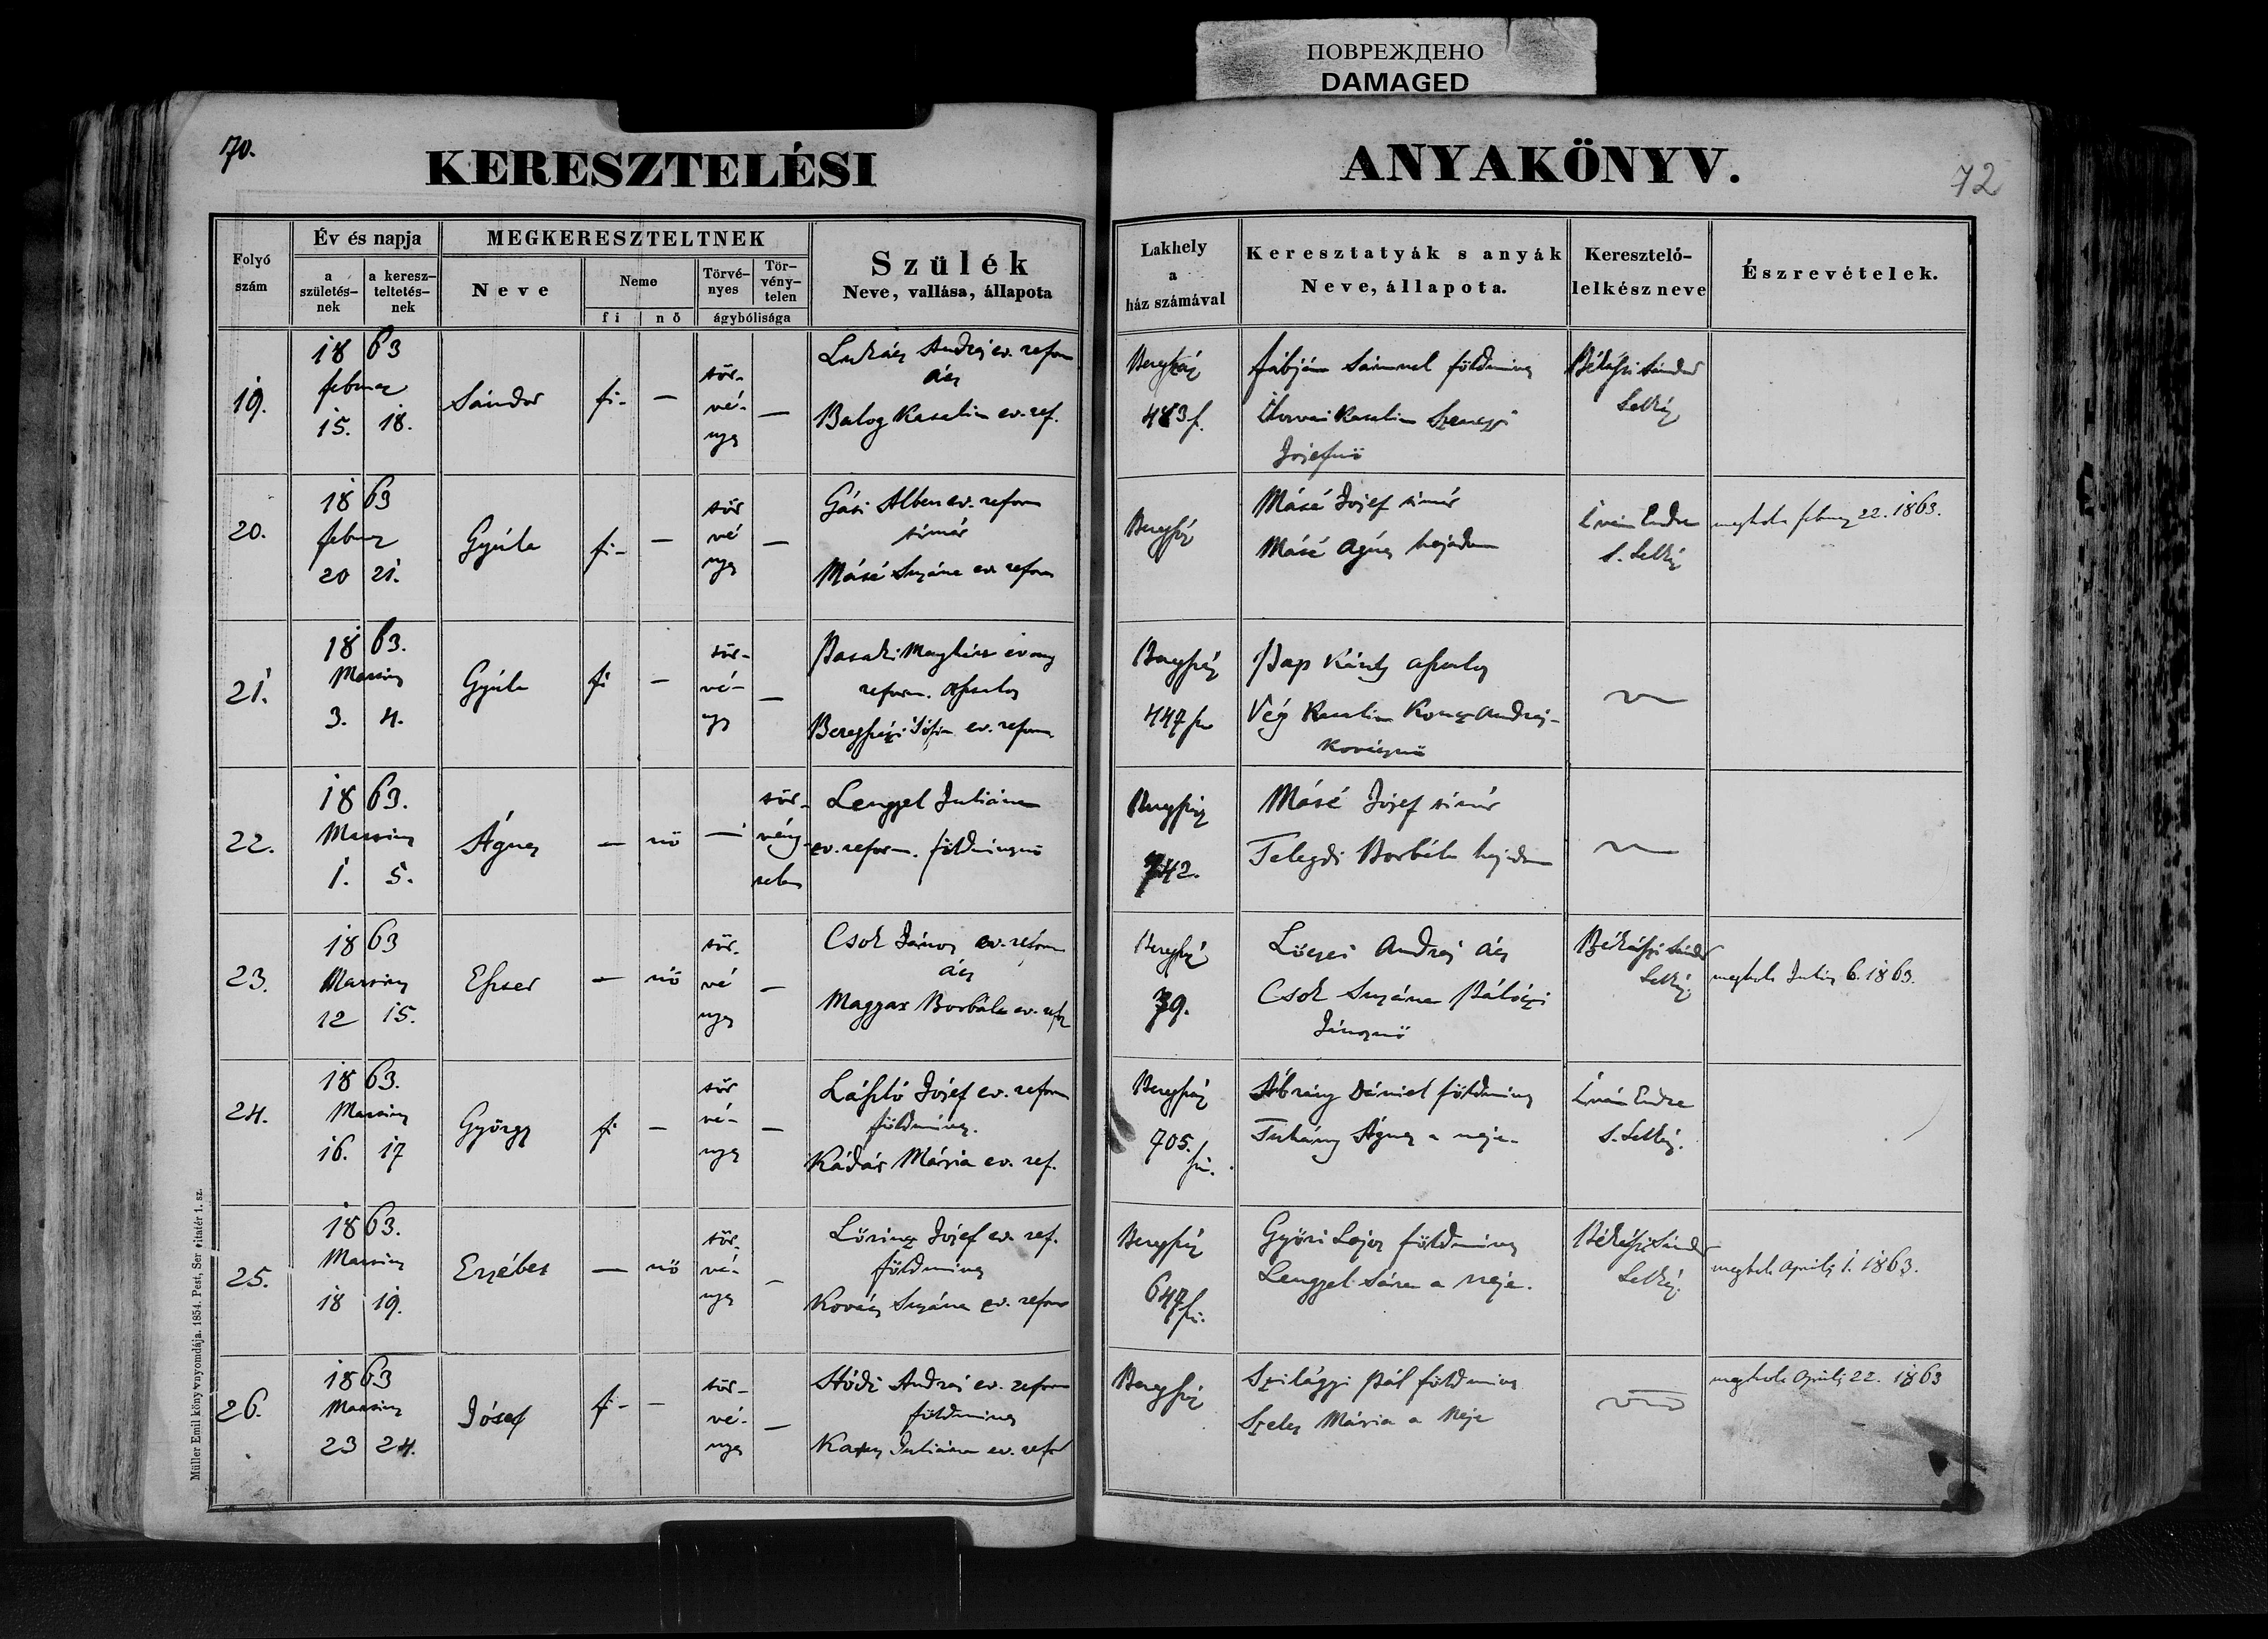 ПОВРЕЖДЕНО
DAMAGED
170.
KERESZTELÉSI
ANYAKÖNYV.
72
Folyó szám
Év és napja
a születés-nek
a keresz-teltetés-nek
MEGKERESZTELTNEK
Neve
Neme
fi
nő
Törvé-nyes
Tör-vény-telen
ágybólisága
Szülék
Neve, vallása, állapota
Lakhely
a
ház számával
Keresztatyák s anyák
Neve, állapota.
Keresztelő-
lelkész neve
Észrevételek.
19.
1863
februar
15. 18.
Sándor
fi- —
tör-
vé-
nyes
—
Lukács Andrej ev. reform
ács
Balog Katalin ev. ref.
Beregszáz
483 f.
Fábján Sámuel földmives
Katalin
Jósefnö
Békássi Sándor
Lelkész
20.
1863
februar
20 21.
Gyúla
fi- —
tör
vé
nyes
—
Albert ev. reform
timár
Máté Suzána ev. reform
Beregszáz
Máté Jósef timár
Máté Ágnes hajadon
Iván Endre
S. Lelkész
megholt februar 22. 1863.
21.
1863.
Martius
3. 4.
Gyúla
fi —
tör-
vé-
nys
—
Pataki ev ang
reform. asztalos
Beregszászi Zsófia ev. reform
Beregszáz
447 sz
Pap Károly asztalos
Vég Katalin Koncz Andrej-
Kovácsnö
22.
1863.
Martius
1. 5.
Ágnes
— nő
—
tör-
vény-
telen
Lengyel Juliánna
ev. reform. földmivesnö
Beregszáz
742.
Máté Jósef timár
Telegdi Borbála hajadon
23.
1863
Martius
12 15.
Eszter
— nő
tör-
vé
nyes
—
Csok János ev. reform
ács
Magyar Borbála ev. ref
Beregszáz
39.
Löcsei Andrej ács
Csok Suzána Pálóczi
Jánosnö
Békássi Sándor
Lelkész
megholt Julius 6. 1863.
24.
1863.
Martius
16. 17
György
fi —
tör
vé-
nyes
—
László Jósef ev. reform
földmives.
Kádár Mária ev. ref.
Beregszáz
705.
sz.
Ábrány Dániel földmives
Ágnes a neje.
Iván Endre
S. Lelkész.
25.
1863.
Martius
18 19.
Erzébet
— nő
tör-
vé-
nyes
—
Lőrincz Jósef ev. ref.
földmives
Kovács Suzána ev. reform
Beregszáz
647
sz.
Győri Lajos földmives
Lengyel Sára a neje.
Békássi Sándor
Lelkész
megholt Aprilis 1. 1863.
26.
1863
Martius
23 24.
Jósef
fi- —
tör-
vé-
nyes
—
Hódi Andrej ev. reform
földmives
Juliánna ev. refor
Beregszáz
Szilágyi Pál földmives
Szeles Mária a Neje
megholt Aprilis 22. 1863
Müller Emil könyvnyomdája. 1854. Pest, Ser vitatér 1. sz.